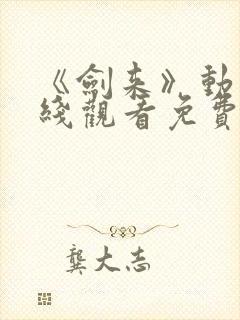 《劍来》動
綫觀看免費
龔大志